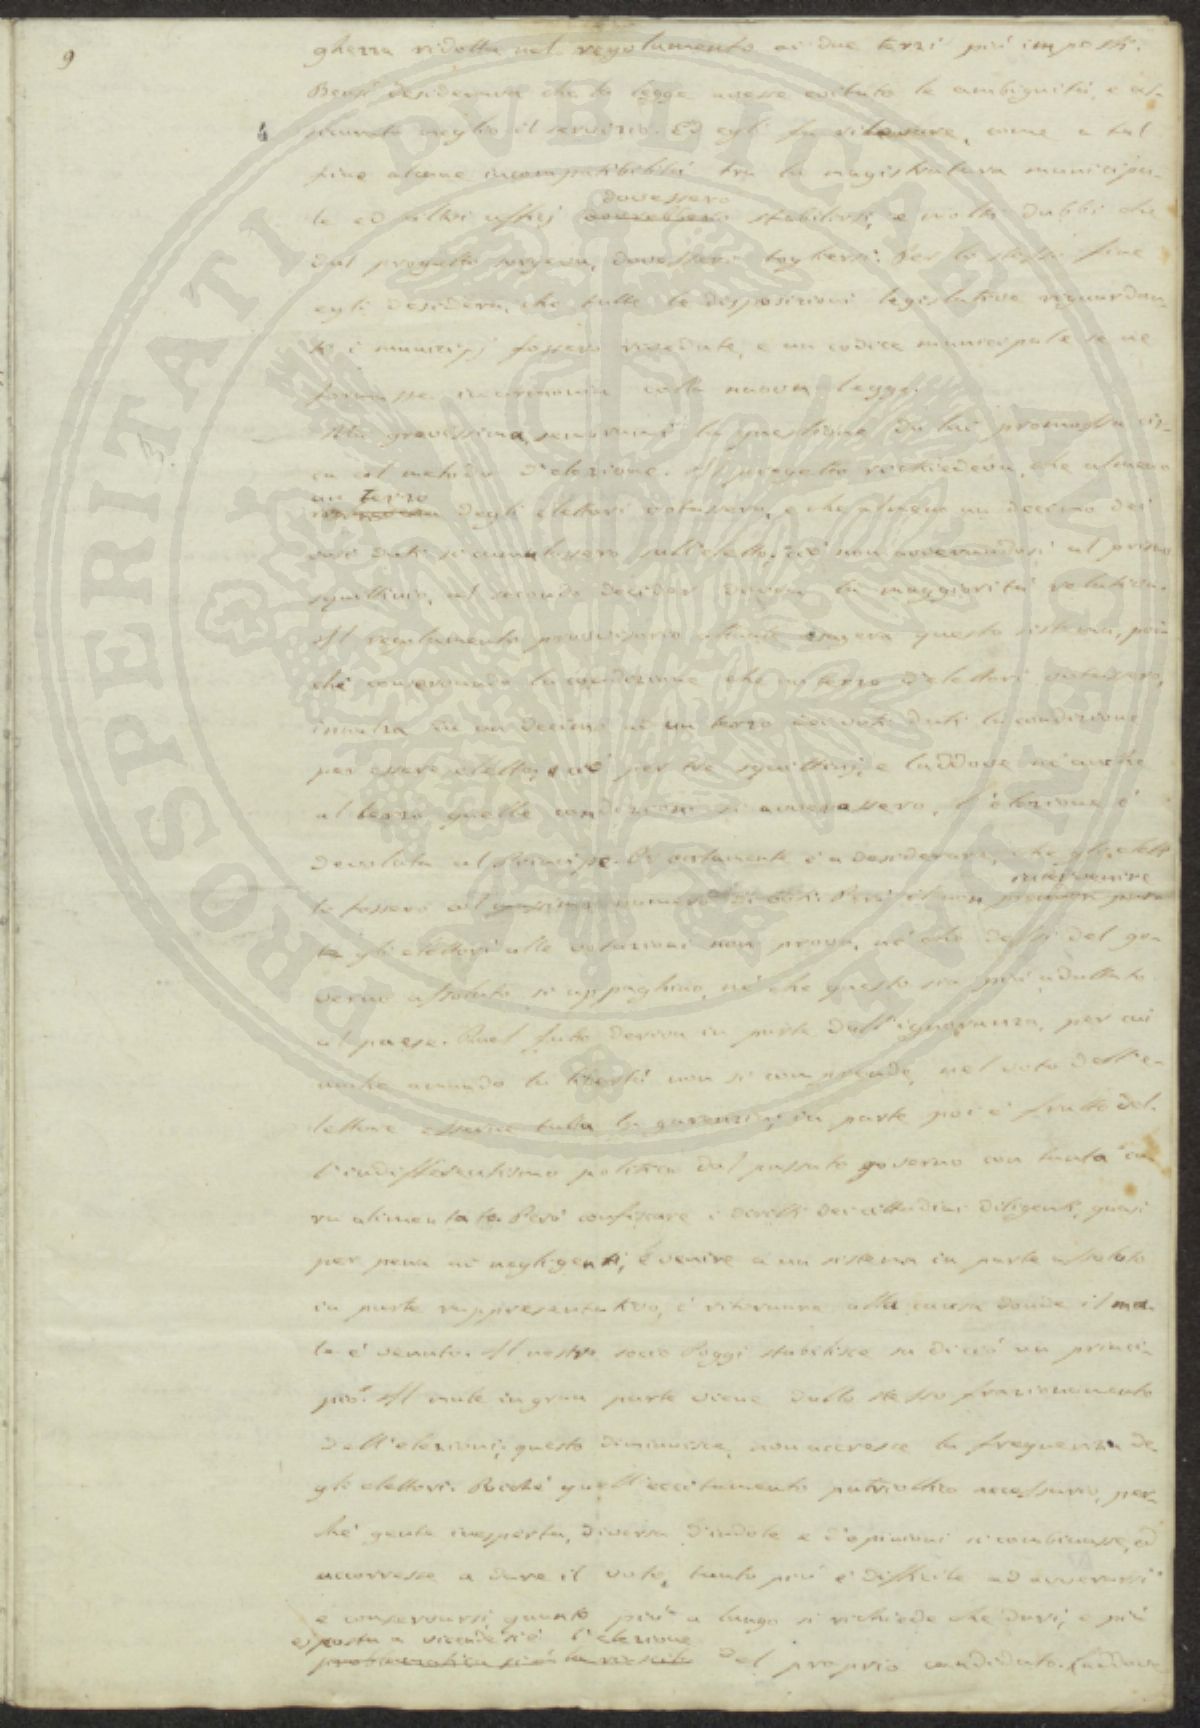 9
gherra ridotta nel regolamento ai due terzi più imposti.
Bensì desiderava che la legge avesse evitato le ambiguità, e as-
sicurato meglio il servizio. Ed egli fa rilevare, come a tal
fine alcune incompatibilità tra la magistratura municipa-
dovessero
le ed altri uffizj dovrebbero stabilirsi, e molti dubbi che
dal progetto sorgeva, dovessero togliersi. Per lo stesso fine
egli desidera, che tutte le disposizioni legislative riguardan-
ti i municipj fossero rivedute, e un codice municipale se ne
formasse in armonia colla nuova legge.
Ma gravissima, la questione da lui promossa cir-
ca al metodo d'elezione. Il progetto richiedeva, che almeno
un terzo
degli elettori votassero, e che almeno un decimo dei
voti dati si cumulassero sull'eletto; ciò non avverandosi al primo
squittinio, al secondo decider doveva la maggiorità relativa.
Il regolamento provvisorio attuale questo sistema, poi-
chè conservando la condizione che un terzo d'elettori votassero,
innalza da un decimo ad un terzo dei voti dati la condizione
per essere eletto, e ciò per tre squittinj, e laddove nè anche
al terzo quelle condizioni si avverassero, l'elezione è
devoluta al Principe. È certamente è a desiderarsi, che gli eletti
intervenire
lo fossero col massimo numero di voti. Però il non
gli elettori alle votazioni non prova, nè che dessi del go-
verno assoluto si appaghino, nè che questo sia più adattato
al paese. Quel fatto deriva in parte dall'ignoranza, per cui
anche amando la libertà non si comprende, nel voto dell'e-
lettore esserne tutta la garenzia; in parte poi è frutto del-
l'indifferentismo politico dal passato governo con tanta cu-
ra alimentato. Però confiscare i diritti dei cittadini diligenti, quasi
per pena ai negligenti, e venire a un sistema in parte assoluto
in parte rappresentativo, è ritornare alla causa donde il ma-
le è venuto. Il nostro socio Poggi stabilisce su di ciò un princi-
pio. Il male in gran parte viene dallo stesso frazionamento
dell'elezioni; questo diminuisce, non accresce la frequenza de-
gli elettori. Poichè quell'eccitamento patriottico necessario, per-
chè gente inesperta, diversa d'indole e d'opinioni si combinasse, ed
accorresse a dare il voto, tanto più è difficile ad avverarsi
e conservarsi, quanto più a lungo si richiede che duri, e più
esposta a vicende si è l'elezione
del proprio candidato. Laddove